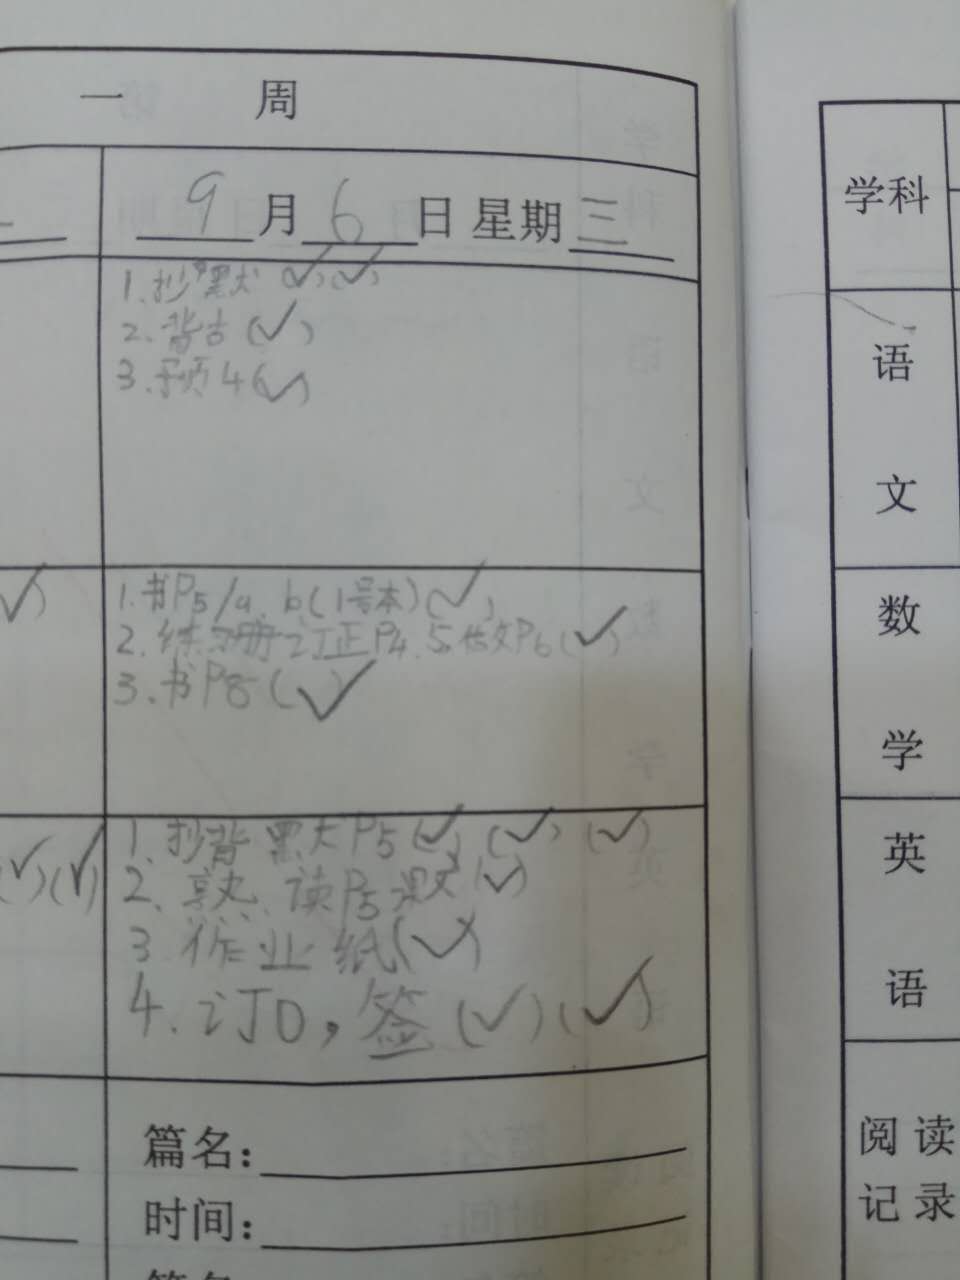 一 周
9月6日 星期三
1.抄 默 (✓)(✓)
2.背古(✓)
3.预46(✓)
1.书P5/a、b(1号本)(✓)
2.练习册订正P4.5 P6(✓)
3.书P8(✓)
1.抄背 默大P5(✓)(✓)(✓)
2.熟.读P5课文(✓)
3.作业纸(✓)
4.订0,签(✓)(✓)
(✓)(✓)
篇名:
时间:
学科
语
文
数
学
英
语
阅读
记录